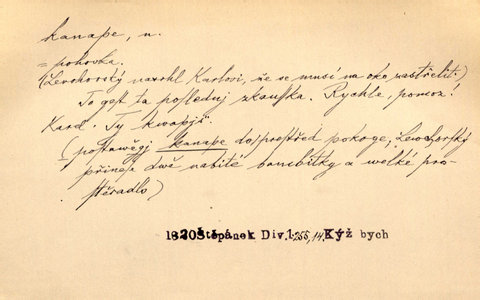 kanape, n.
= pohovka.
(Levohorský navrhl Karlovi, že se musí na oko zastřelit:)
To gest ta poslednj zkauška. Rychle, pomoz!
Karel. Ty kwapjš.
(postawěgj kanape do prostřed pokoge; Lewohorský
přinese dwě nabité bambitky a welké pro-
stěradlo)
1820 Štěpánek Div.1.255,14. Kýž bych